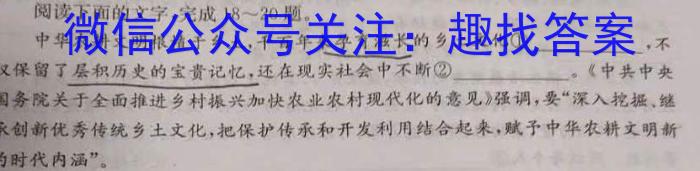 阅读下面的文字,完成18~20题。
微信公众号关注:趣找答案
中华 乡 滋长的乡 ,不
仅保留了层积历史的宝贵记忆,还在现实社会中不断②________。《中共中央
国务院关于全面推进乡村振兴加快农业农村现代化的意见》强调,要“深入挖掘、继
承创新优秀传统乡土文化,把保护传承和开发利用结合起来,赋予中华农耕文明新
的时代内涵”。